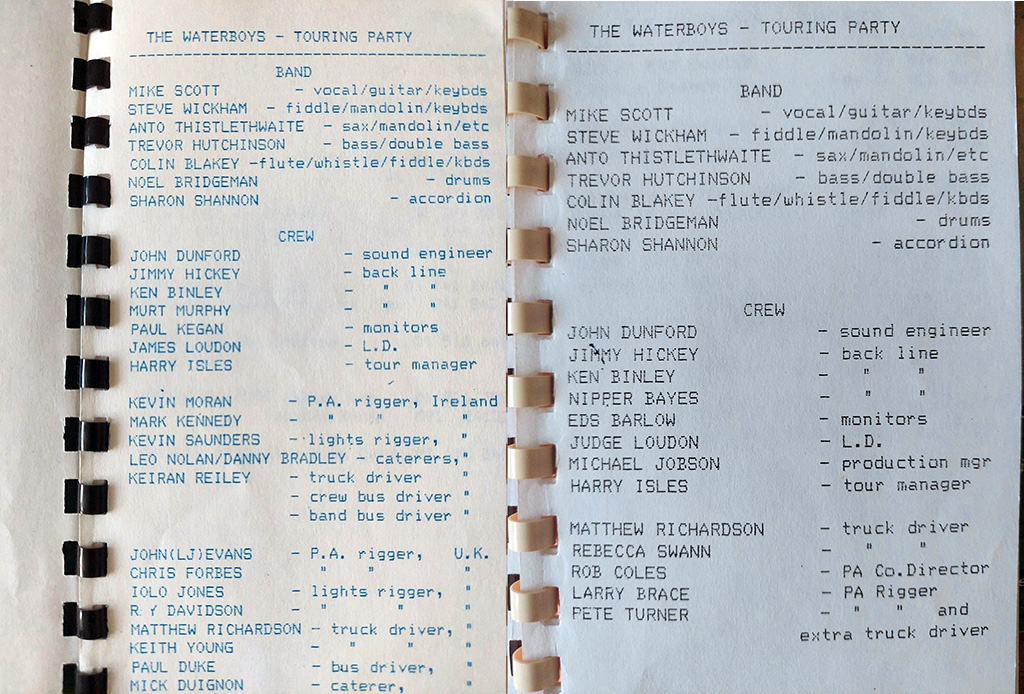 THE WATERBOYS - TOURING PARTY
BAND
MIKE SCOTT - vocal/guitar/keybds
STEVE WICKHAM - fiddle/mandolin/keybds
ANTO THISTLETHWAITE - sax/mandolin/etc
TREVOR HUTCHINSON - bass/double bass
COLIN BLAKEY -flute/whistle/fiddle/kbds
NOEL BRIDGEMAN - drums
SHARON SHANNON - accordion
CREW
JOHN DUNFORD - sound engineer
JIMMY HICKEY - back line
KEN BINLEY - " "
MURT MURPHY - " "
PAUL KEGAN - monitors
JAMES LOUDON - L.D.
HARRY ISLES - tour manager
KEVIN MORAN - P.A. rigger, Ireland
MARK KENNEDY - " " "
KEVIN SAUNDERS - lights rigger, "
LEO NOLAN/DANNY BRADLEY - caterers,"
KEIRAN REILEY - truck driver "
- crew bus driver "
- band bus driver "
JOHN(LJ)EVANS - P.A. rigger, U.K.
CHRIS FORBES " " "
IOLO JONES - lights rigger, "
DAVIDSON - " " "
MATTHEW RICHARDSON - truck driver, "
KEITH YOUNG - " " "
PAUL DUKE - bus driver, "
MICK DUIGNON - caterer, "
THE WATERBOYS - TOURING PARTY
BAND
MIKE SCOTT - vocal/guitar/keybds
STEVE WICKHAM - fiddle/mandolin/keybds
ANTO THISTLETHWAITE - sax/mandolin/etc
TREVOR HUTCHINSON - bass/double bass
COLIN BLAKEY -flute/whistle/fiddle/kbds
NOEL BRIDGEMAN - drums
SHARON SHANNON - accordion
CREW
JOHN DUNFORD - sound engineer
JIMMY HICKEY - back line
KEN BINLEY - " "
NIPPER BAYES - " "
EDS BARLOW - monitors
JUDGE LOUDON - L.D.
MICHAEL JOBSON - production mgr
HARRY ISLES - tour manager
MATTHEW RICHARDSON - truck driver
REBECCA SWANN - " "
ROB COLES - PA Co.Director
LARRY BRACE - PA Rigger
PETE TURNER - " " and
extra truck driver